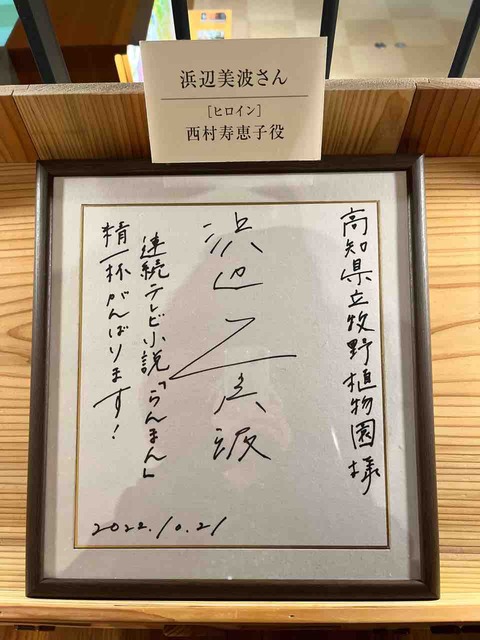 浜辺美波さん
[ヒロイン]
西村寿恵子役
高知県立牧野植物園様
浜辺美波
連続テレビ小説「らんまん」
精一杯がんばります!
2022.10.21